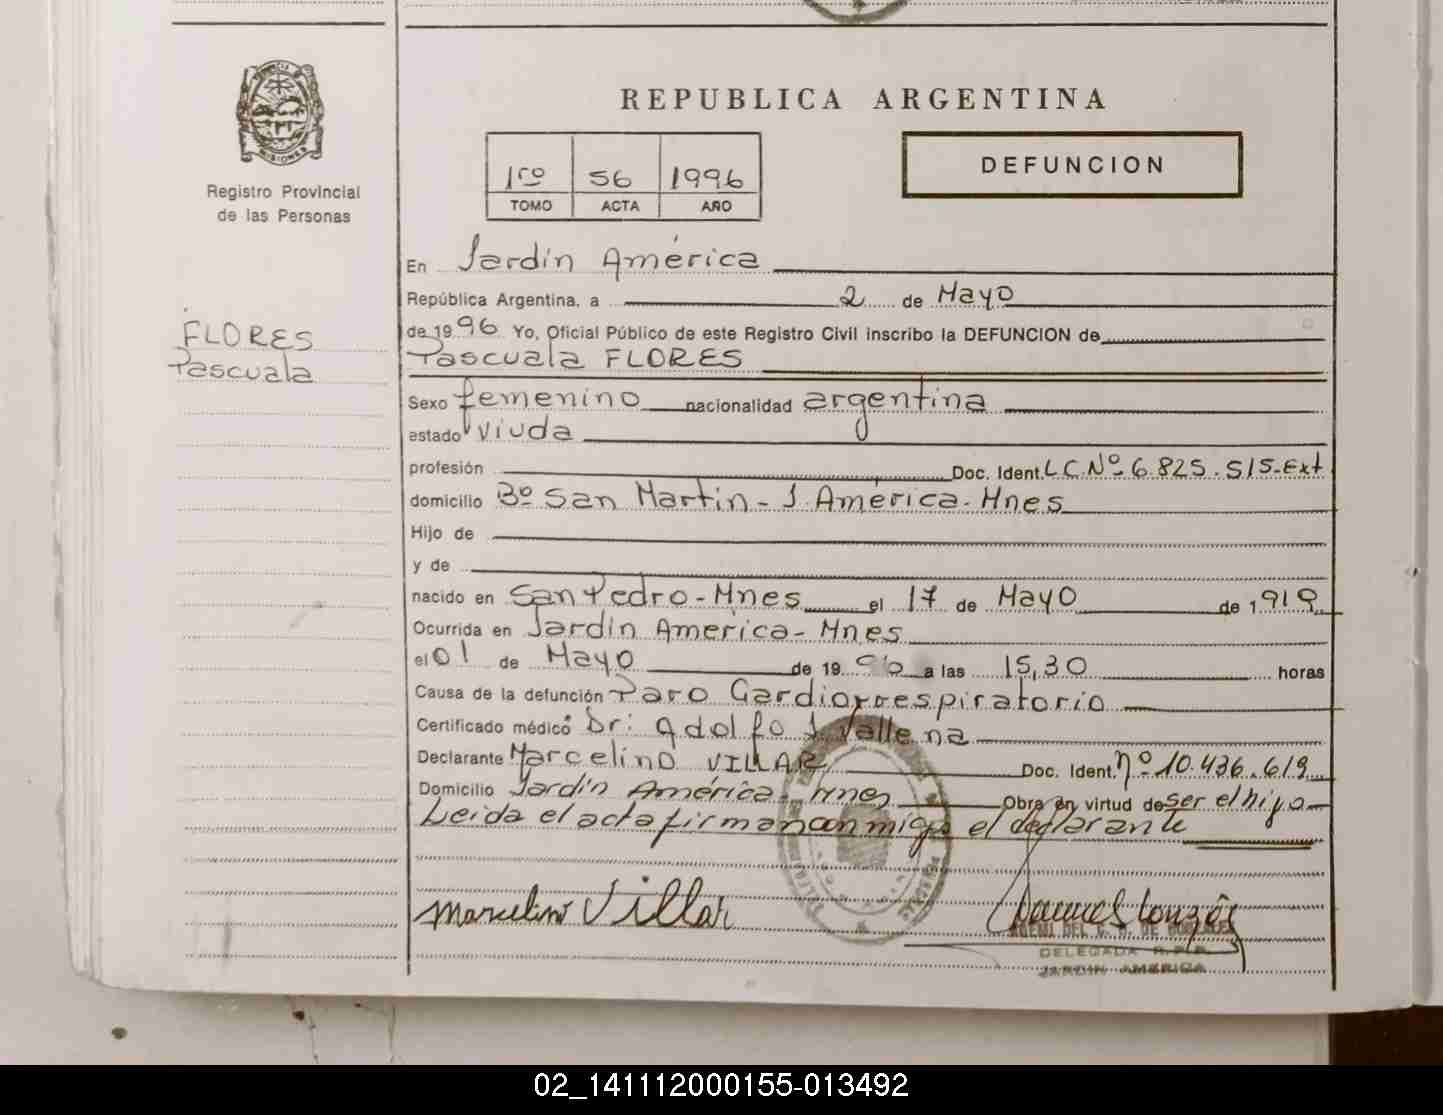 MISIONES
Registro Provincial
de las Personas
REPUBLICA ARGENTINA
1ro 56 1996
TOMO ACTA AÑO
DEFUNCION
FLORES
Pascuala
En Jardín América
República Argentina, a 2 de Mayo
de 1996 Yo, Oficial Público de este Registro Civil inscribo la DEFUNCION de
Pascuala FLORES
Sexo femenino nacionalidad argentina
estado viuda
profesión Doc. Ident. L.C.Nº 6.825.515-Ext
domicilio Bº San Martín - J. América - Mnes
Hijo de
y de
nacido en San Pedro - Mnes el 17 de Mayo de 1.919
Ocurrida en Jardín América - Mnes
el 01 de Mayo de 1996 a las 15,30 horas
Causa de la defunción Paro Cardiorrespiratorio
Certificado médico Dr: Adolfo J. Vallena
Declarante Marcelino VILLAR Doc. Ident. nº 10.436.619
Domicilio Jardín América - Mnes Obra en virtud de ser el hijo
Leida el acta firman con migo el declarante
Marcelino Villar
DELEGADA R.P.P.
JARDIN AMERICA
02_141112000155-013492